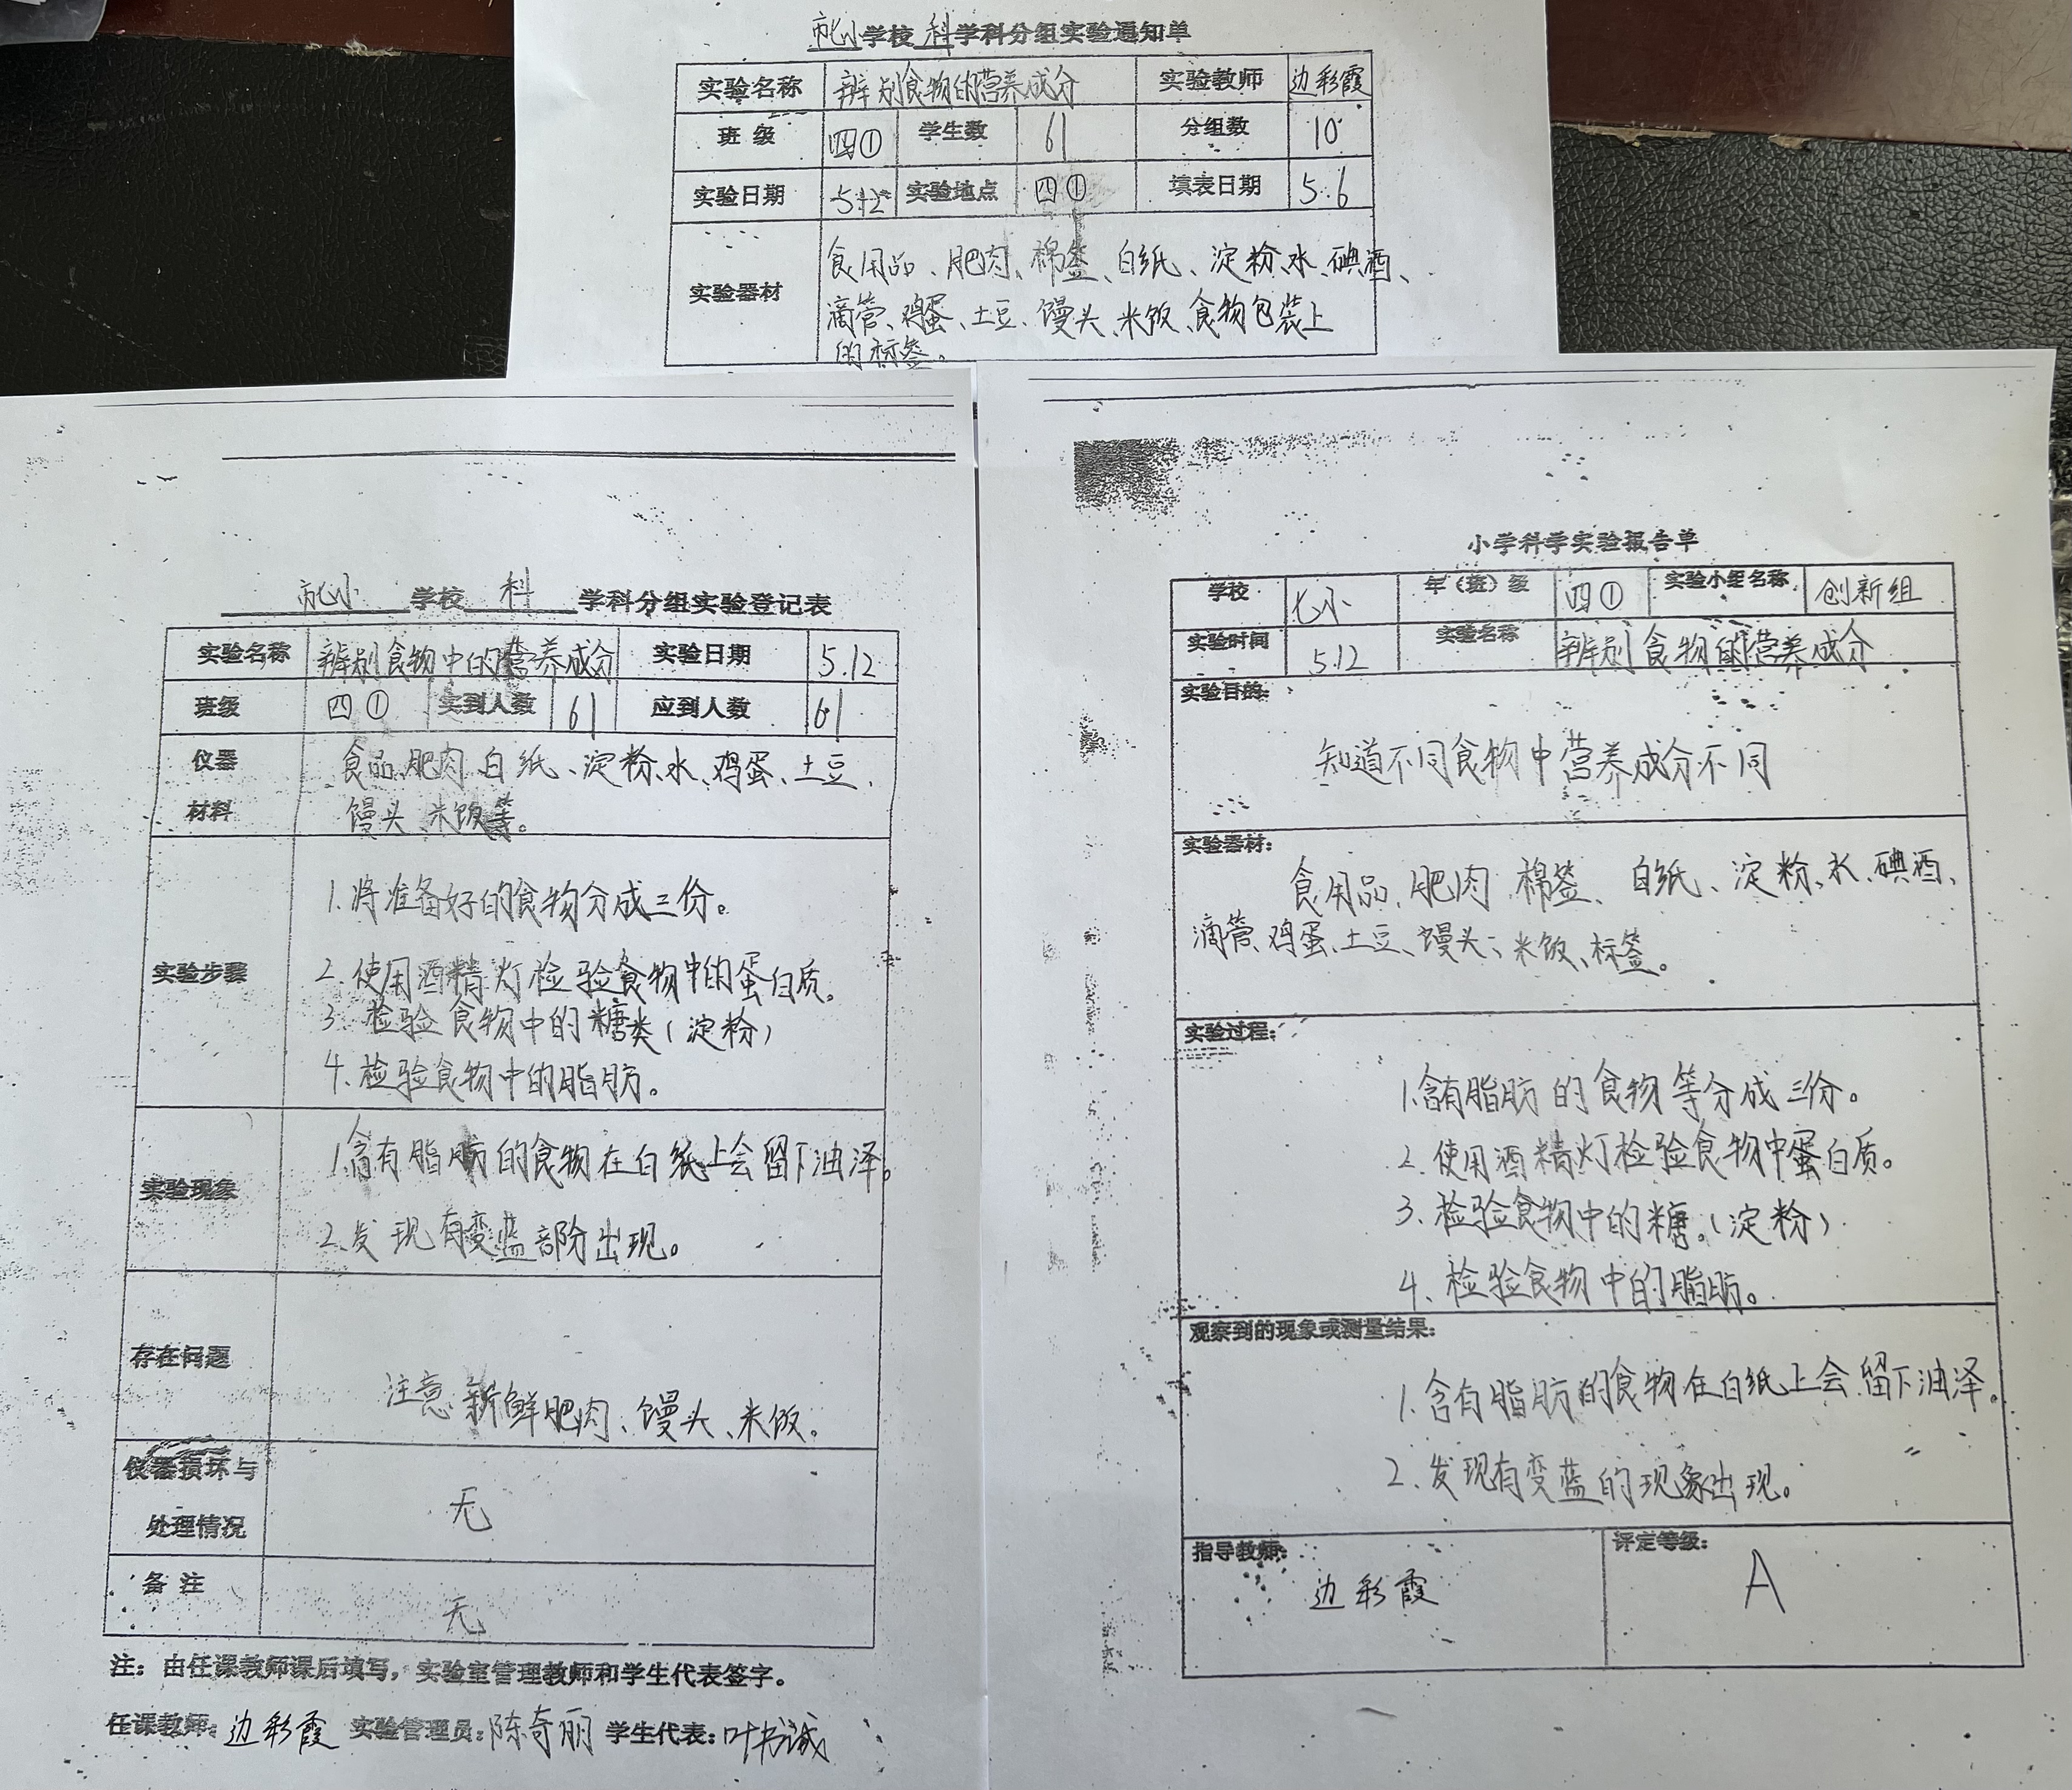 市七小学校 科学科分组实验通知单
实验名称 辨别食物的营养成分 实验教师 边彩霞
班级 四① 学生数 61 分组数 10
实验日期 5.12 实验地点 四① 填表日期 5.6
实验器材 食用品、肥肉、棉签、白纸、淀粉、水、碘酒、
滴管、鸡蛋、土豆、馒头、米饭、食物包装上
的标签。
市七小 学校 科 学科分组实验登记表
实验名称 辨别食物中的营养成分 实验日期 5.12
班级 四① 实到人数 61 应到人数 61
仪器 食品、肥肉、白纸、淀粉、水、鸡蛋、土豆、
材料 馒头、米饭等。
1.将准备好的食物分成三份。
实验步骤 2.使用酒精灯检验食物中的蛋白质。
3.检验食物中的糖类(淀粉)
4.检验食物中的脂肪。
1.含有脂肪的食物在白纸上会留下油泽。
实验现象
2.发现有变蓝部份出现。
存在问题
注意新鲜肥肉、馒头、米饭。
仪器损坏与
处理情况 无
备注 无
注：由任课教师课后填写，实验室管理教师和学生代表签字。
任课教师：边彩霞 实验管理员：陈奇丽 学生代表：叶书诚
小学科学实验报告单
学校 七小 年（班）级 四① 实验小组名称 创新组
实验时间 5.12 实验名称 辨别食物的营养成分
实验目的：
知道不同食物中营养成分不同
实验器材：
食用品、肥肉、棉签、白纸、淀粉、水、碘酒、
滴管、鸡蛋、土豆、馒头、米饭、标签。
实验过程：
1.含有脂肪的食物等分成三份。
2.使用酒精灯检验食物中蛋白质。
3.检验食物中的糖。(淀粉)
4.检验食物中的脂肪。
观察到的现象或测量结果：
1.含有脂肪的食物在白纸上会留下油泽。
2.发现有变蓝的现象出现。
指导教师： 评定等级：
边彩霞 A